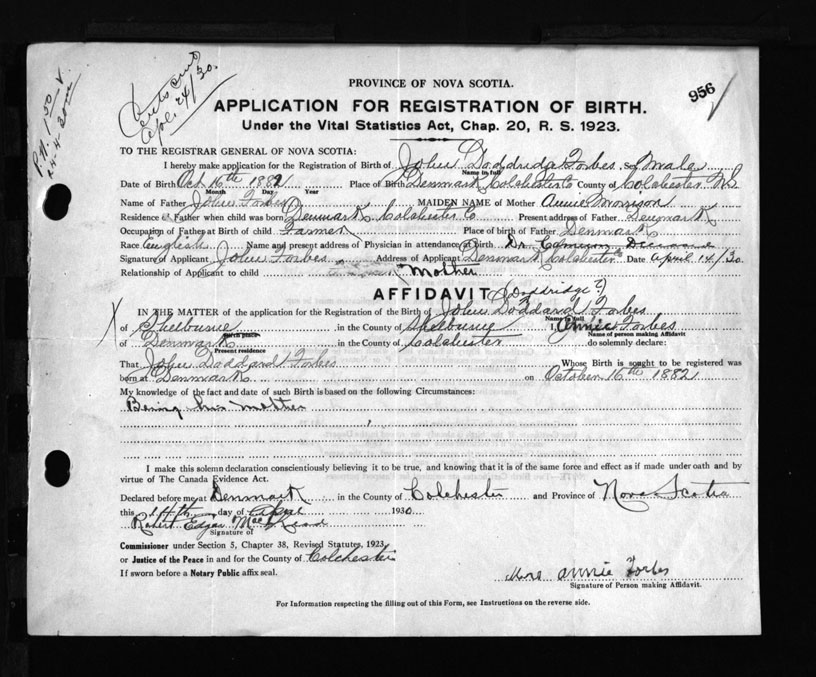 P.N. 1.50
24-4-30
Certs
Apl. 24/30.
956
PROVINCE OF NOVA SCOTIA.
APPLICATION FOR REGISTRATION OF BIRTH.
Under the Vital Statistics Act, Chap. 20, R. S. 1923.
TO THE REGISTRAR GENERAL OF NOVA SCOTIA:
I hereby make application for the Registration of Birth of John Doddridge Forbes Sex male
Name in full
Date of Birth Oct 16th 1882 Place of Birth Denmark Colchester Co County of Colchester N S
Month Day Year
Name of Father John Forbes MAIDEN NAME of Mother Annie Morrison
Residence of Father when child was born Denmark Colchester Co Present address of Father Denmark
Occupation of Father at Birth of child Farmer Place of birth of Father Denmark
Race English Name and present address of Physician in attendance at Birth Dr.
Signature of Applicant John Forbes Address of Applicant Denmark Colchester Co Date April 14/30
Relationship of Applicant to child Mother
AFFIDAVIT (Doddridge?)
IN THE MATTER of the application for the Registration of the Birth of John Doddard Forbes
Name in full
of Shelburne in the County of Shelburne I, Annie Forbes
Birth place Name of person making Affidavit
of Denmark in the County of Colchester do solemnly declare:
Present residence
That John Doddard Forbes Whose Birth is sought to be registered was
born at Denmark on October 16th 1882
My knowledge of the fact and date of such Birth is based on the following Circumstances:
Being his mother
I make this solemn declaration conscientiously believing it to be true, and knowing that it is of the same force and effect as if made under oath and by
virtue of The Canada Evidence Act.
Declared before me at Denmark in the County of Colchester and Province of Nova Scotia
this 14th day of April 1930
Robert Edgar MacLeod
Signature of
Commissioner under Section 5, Chapter 38, Revised Statutes, 1923
or Justice of the Peace in and for the County of Colchester
If sworn before a Notary Public affix seal.
Mrs Annie Forbes
Signature of Person making Affidavit.
For Information respecting the filling out of this Form, see Instructions on the reverse side.